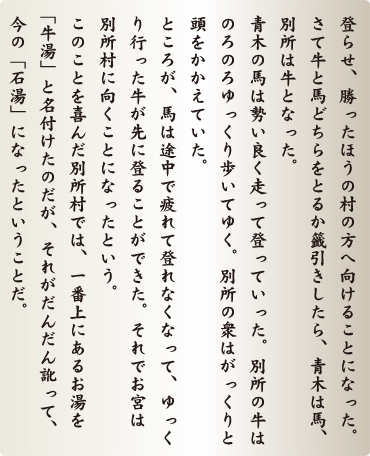 登らせ、勝ったほうの村の方へ向けることになった。
さて牛と馬どちらをとるか籤引きしたら、青木は馬、
別所は牛となった。
青木の馬は勢い良く走って登っていった。別所の牛は
のろのろゆっくり歩いてゆく。別所の衆はがっくりと
頭をかかえていた。
ところが、馬は途中で疲れて登れなくなって、ゆっく
り行った牛が先に登ることができた。それでお宮は
別所村に向くことになったという。
このことを喜んだ別所村では、一番上にあるお湯を
「牛湯」と名付けたのだが、それがだんだん訛って、
今の「石湯」になったということだ。